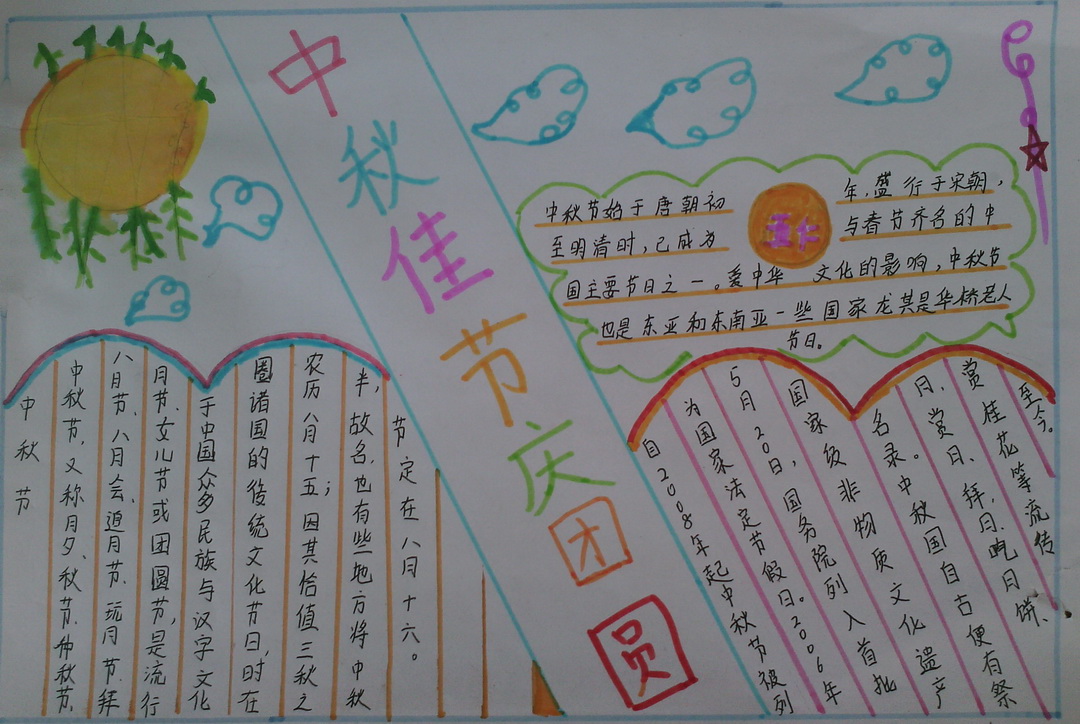 中秋佳节庆团圆
中秋节始于唐朝初年,盛行于宋朝,
至明清时,已成为与春节齐名的中
国主要节日之一。爱中华文化的影响,中秋节
也是东亚和东南亚一些国家龙其是华桥老人
节日。
中秋节
中秋节,又称月夕、秋节、仲秋节、
八月节、八月会、追月节、玩月节、拜
月节、女儿节或团圆节,是流行
于中国众多民族与汉字文化
圈诸国的传统文化节日,时在
农历八月十五;因其恰值三秋之
半,故名,也有些地方将中秋
节定在八月十六。
自2008年起中秋节被列
为国家法定节假日。2006年
5月20日,国务院列入首批
国家级非物质文化遗产
名录。中秋国自古便有祭
月、赏月、拜月、吃月饼、
赏桂花等流传
至今。